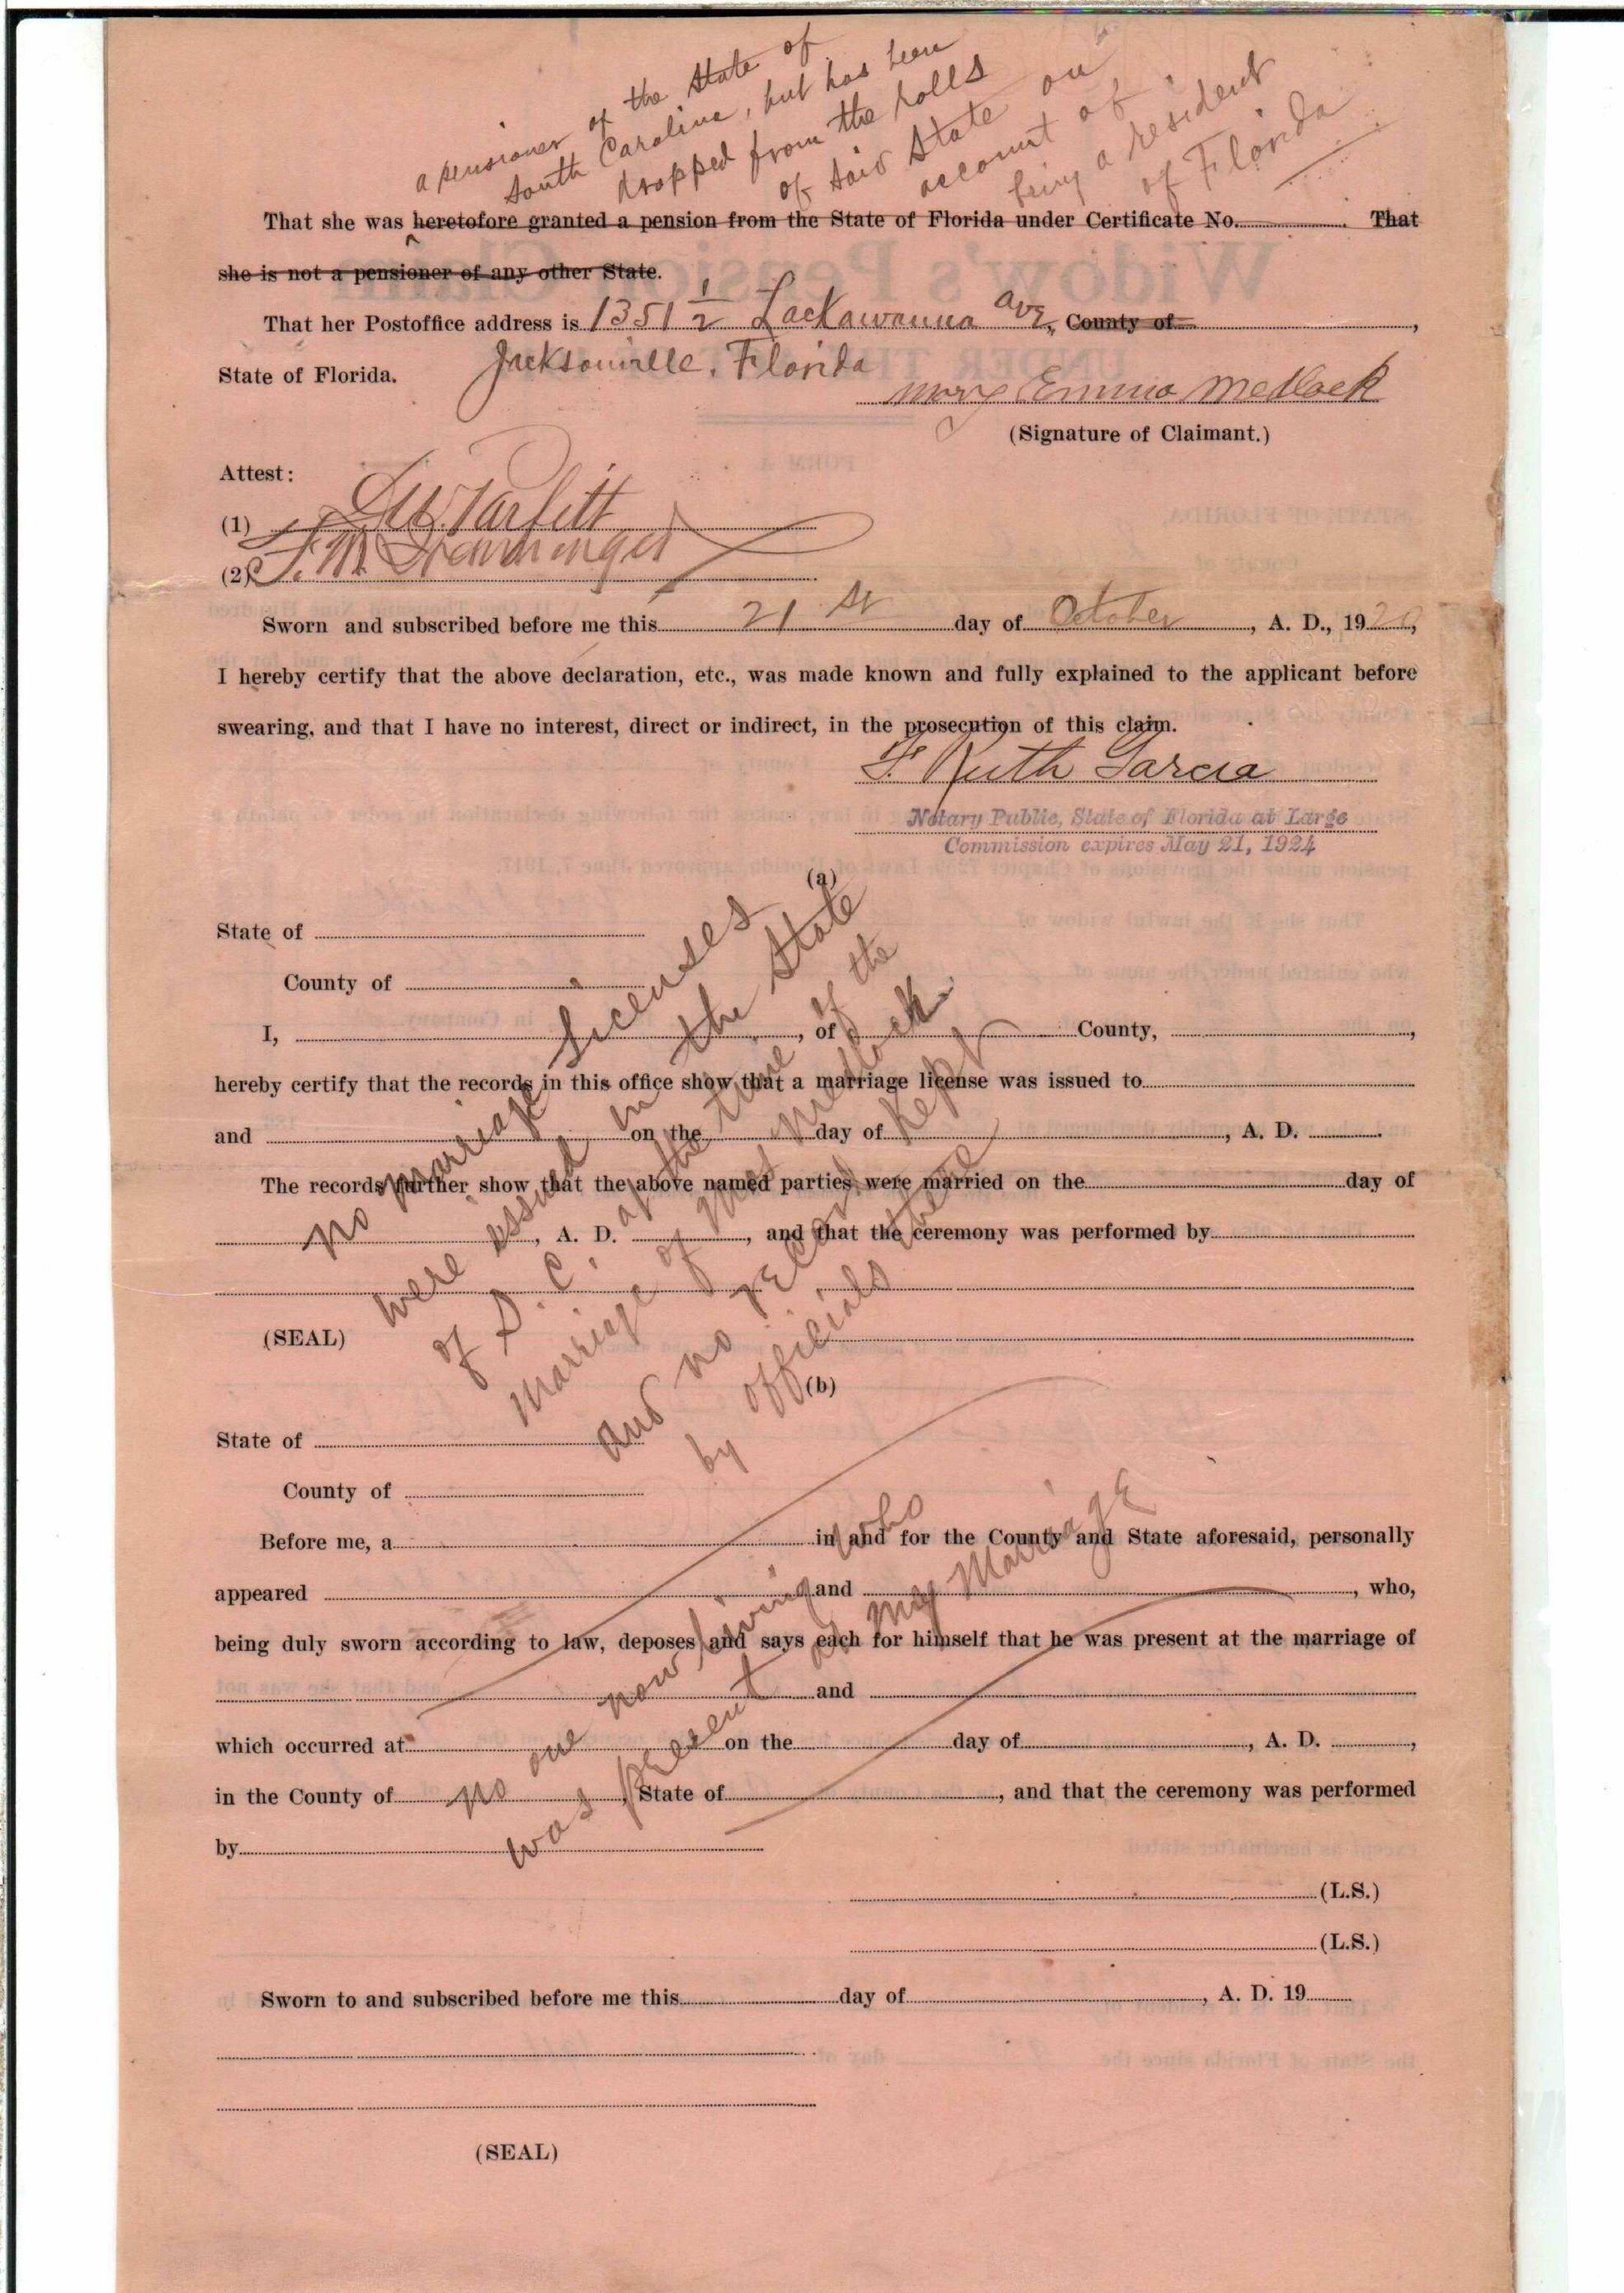 a pensioner of the State of
South Carolina, but has been
dropped from the rolls
of said State on
account of
being a resident
of Florida
That she was heretofore granted a pension from the State of Florida under Certificate No. That
she is not a pensioner of any other State.
That her Postoffice address is 1351 1/2 Lackawanna Ave, County of ,
State of Florida. Jacksonville, Florida
Mary Emma Medlock
(Signature of Claimant.)
Attest:
(1)
(2) F. M.
Sworn and subscribed before me this 21st day of October, A. D., 19 ,
I hereby certify that the above declaration, etc., was made known and fully explained to the applicant before
swearing, and that I have no interest, direct or indirect, in the prosecution of this claim.
F. Ruth Garcia
Notary Public, State of Florida at Large
Commission expires May 21, 1924
(a)
State of
County of
I, , of County, ,
hereby certify that the records in this office show that a marriage license was issued to
and on the day of , A. D. .
The records further show that the above named parties were married on the day of
, A. D. , and that the ceremony was performed by
(SEAL)
no marriage licenses
were issued in the State
of S. C. at the time of the
marriage of Mrs Medlock
and no record kept
by officials there
(b)
State of
County of
Before me, a in and for the County and State aforesaid, personally
appeared and , who,
being duly sworn according to law, deposes and says each for himself that he was present at the marriage of
and
which occurred at on the day of , A. D. ,
in the County of , State of , and that the ceremony was performed
by
no one now living who
was present at my marriage
(L.S.)
(L.S.)
Sworn to and subscribed before me this day of , A. D. 19
(SEAL)